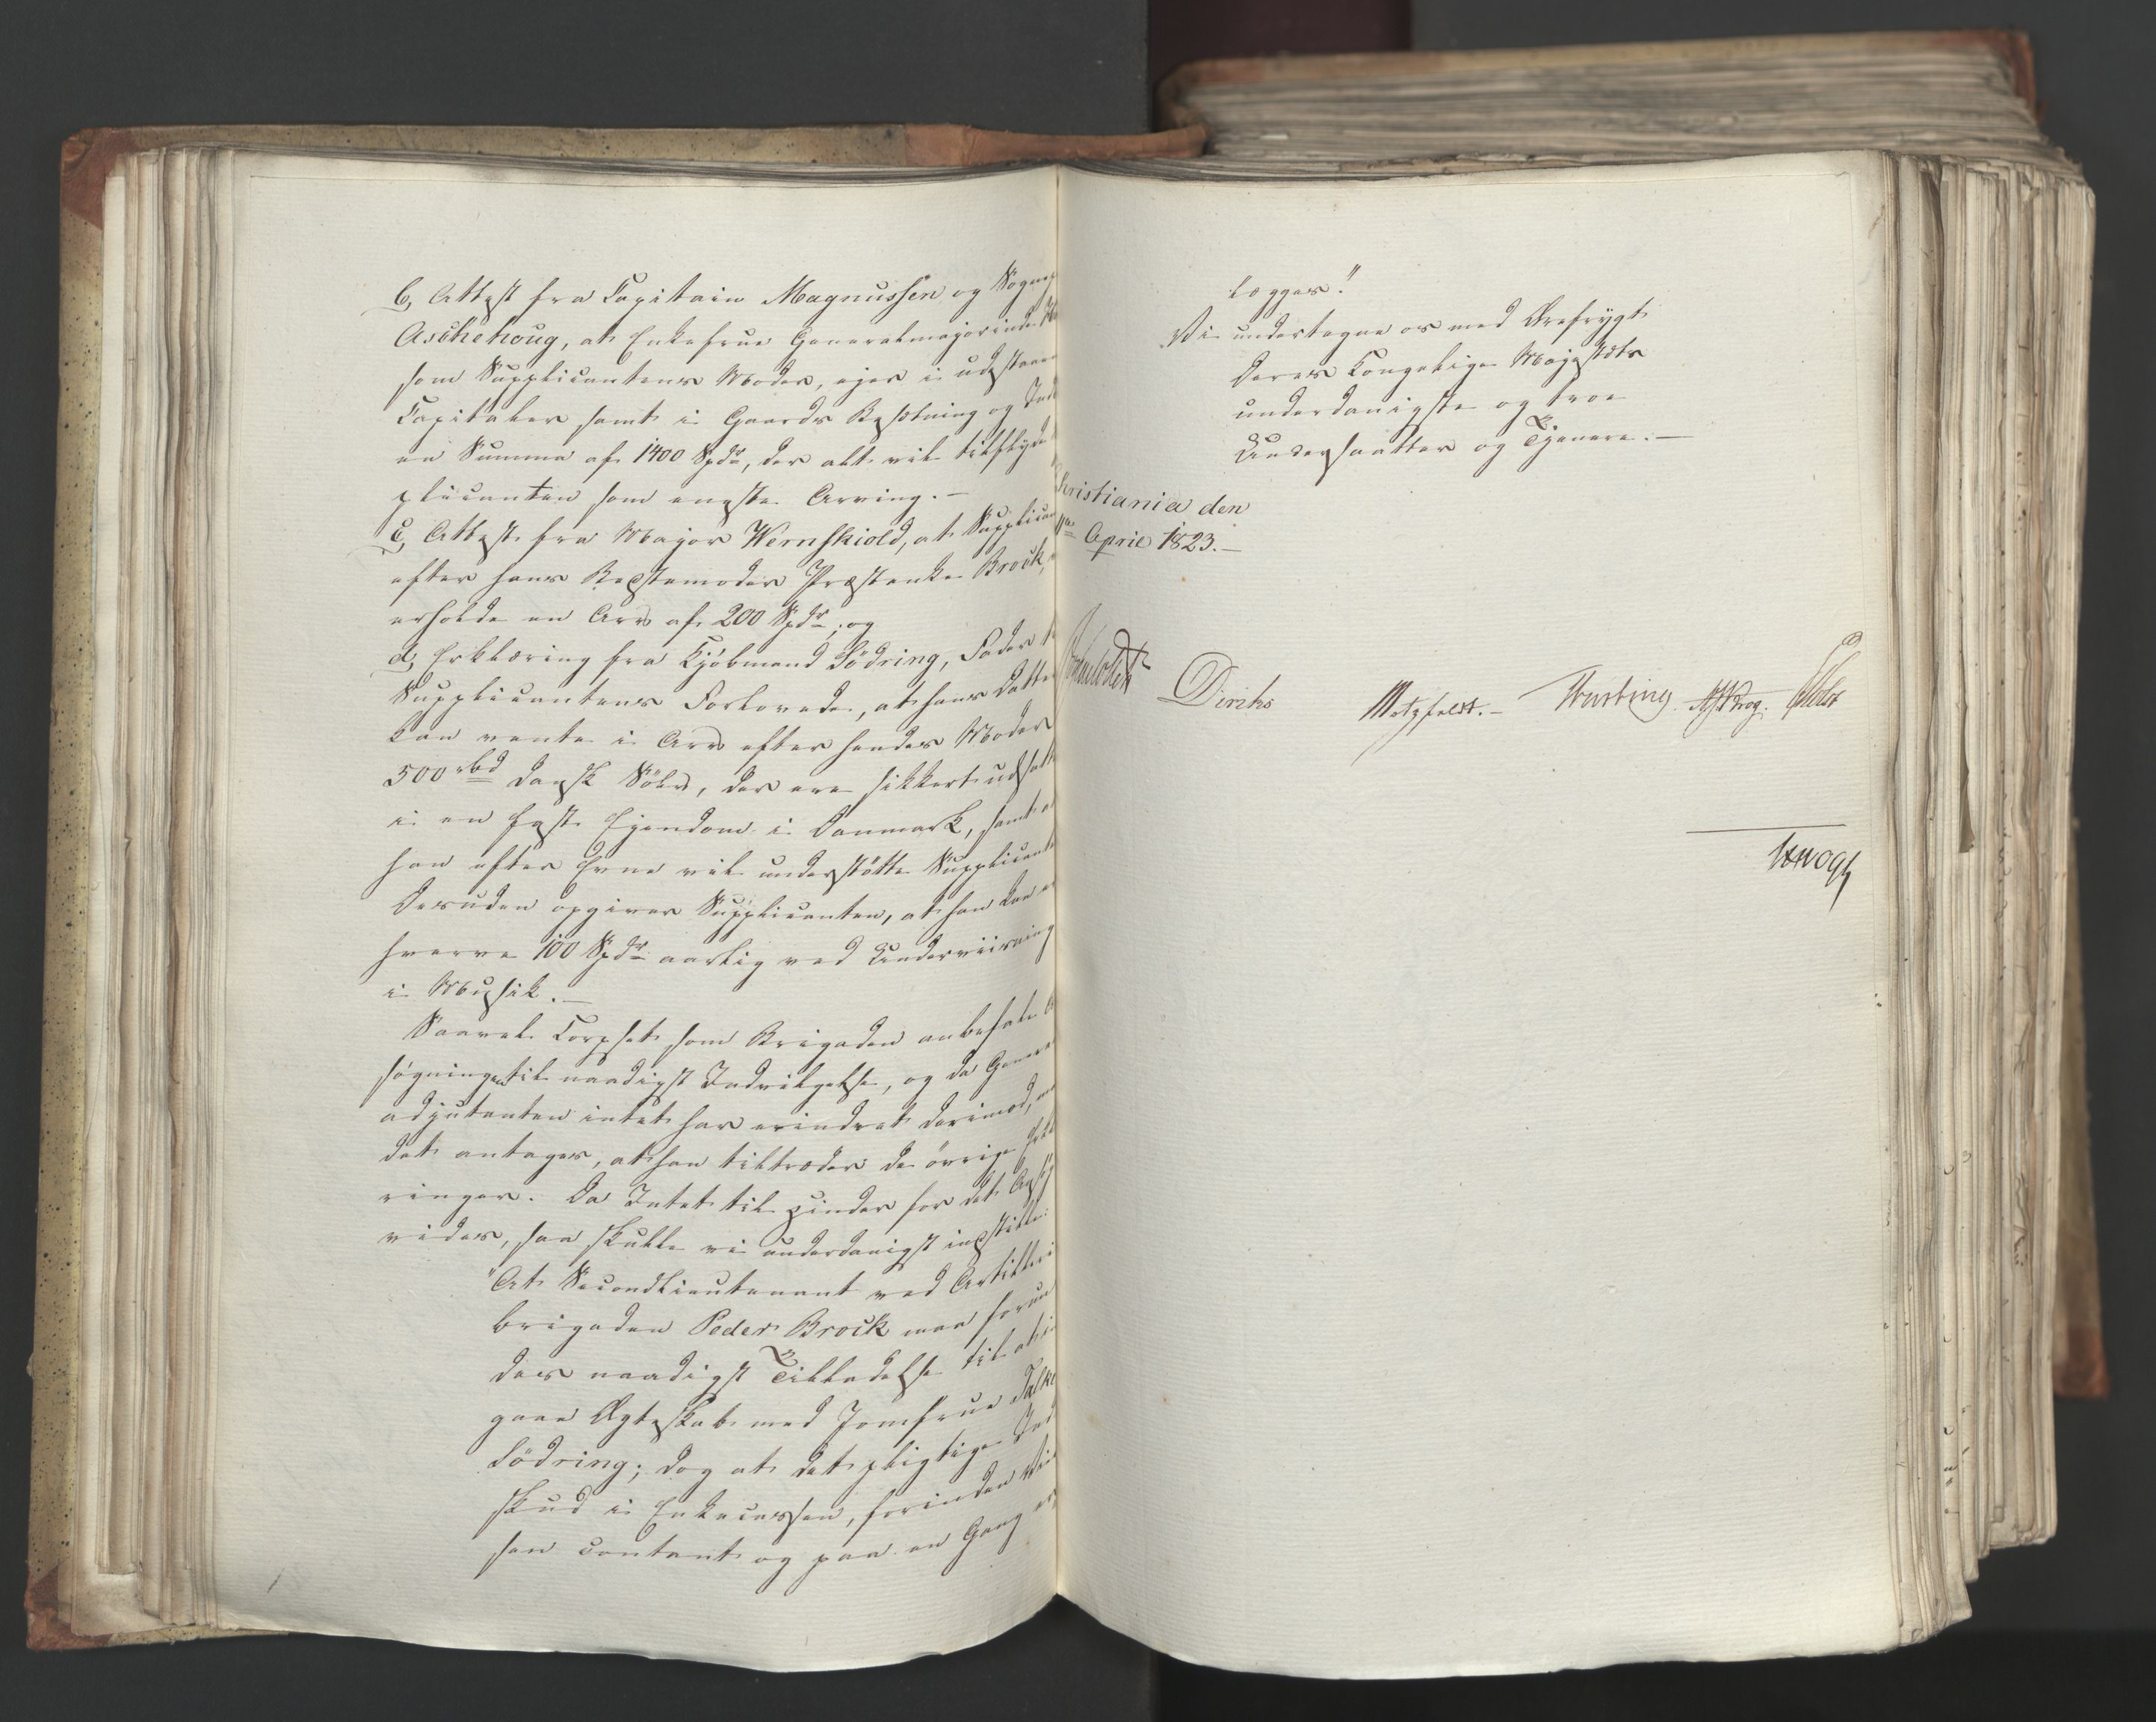 b, Attest fra Capitain Magnussen og Sogne
Aschehoug, at Enkefrue Generalmajorinde
som Supplicantens Moder, ejer i udstaaen
Capitaler samt i Gaards Besætning og Ind
en Summa af 1400 Spdr, der alt vil tilflyde
plicanten som eneste Arving. —
c, Attest fra Major Wernskiold, at Supplican
efter hans Bestemoder Præstenke Brock,
erholde en Arv af 200 Spdr; og
d, Erklæring fra Kjöbmand Södring, Fader t
Supplicantens Forlovede, at hans Datter
kan vente i Arv efter hendes Moder
500 rbd dansk Sölv, der ere sikkert udsatte
i en fast Ejendom i Danmark, samt a
han efter Evne vil understötte Supplicant
Desuden opgiver Supplicanten, at han kan e
hverve 100 Spdr aarlig ved Underviisning
i Musik. —
Saavel Corpset som Brigaden anbefale A
søgningen til naadigst Indvilgelse, og da General
adjutanten intet har erindret derimod,
det antages, at han tiltræder de övrige Erklæ
ringer. Da Intet til Hinder for det Ansög
vides, saa skulle vi underdanigst indstille:
"At Secondlieutenant ved Artilleri
brigaden Peder Brock maa forun
des naadigst Tilladelse til at i
gaae Ægteskab med Jomfrue
Södring; dog at det pligtige Ind
skud i Enkecassen, forinden Vi
sen contant og paa en Gang er
lægges."
Vi undertegne os med Ærefrygt
Deres Kongelige Majestæts
underdanigste og troe
Undersaatter og Tjenere. —
Christiania den
April 1823. —
Diriks
Motzfeldt. —
Krog.
Vogt